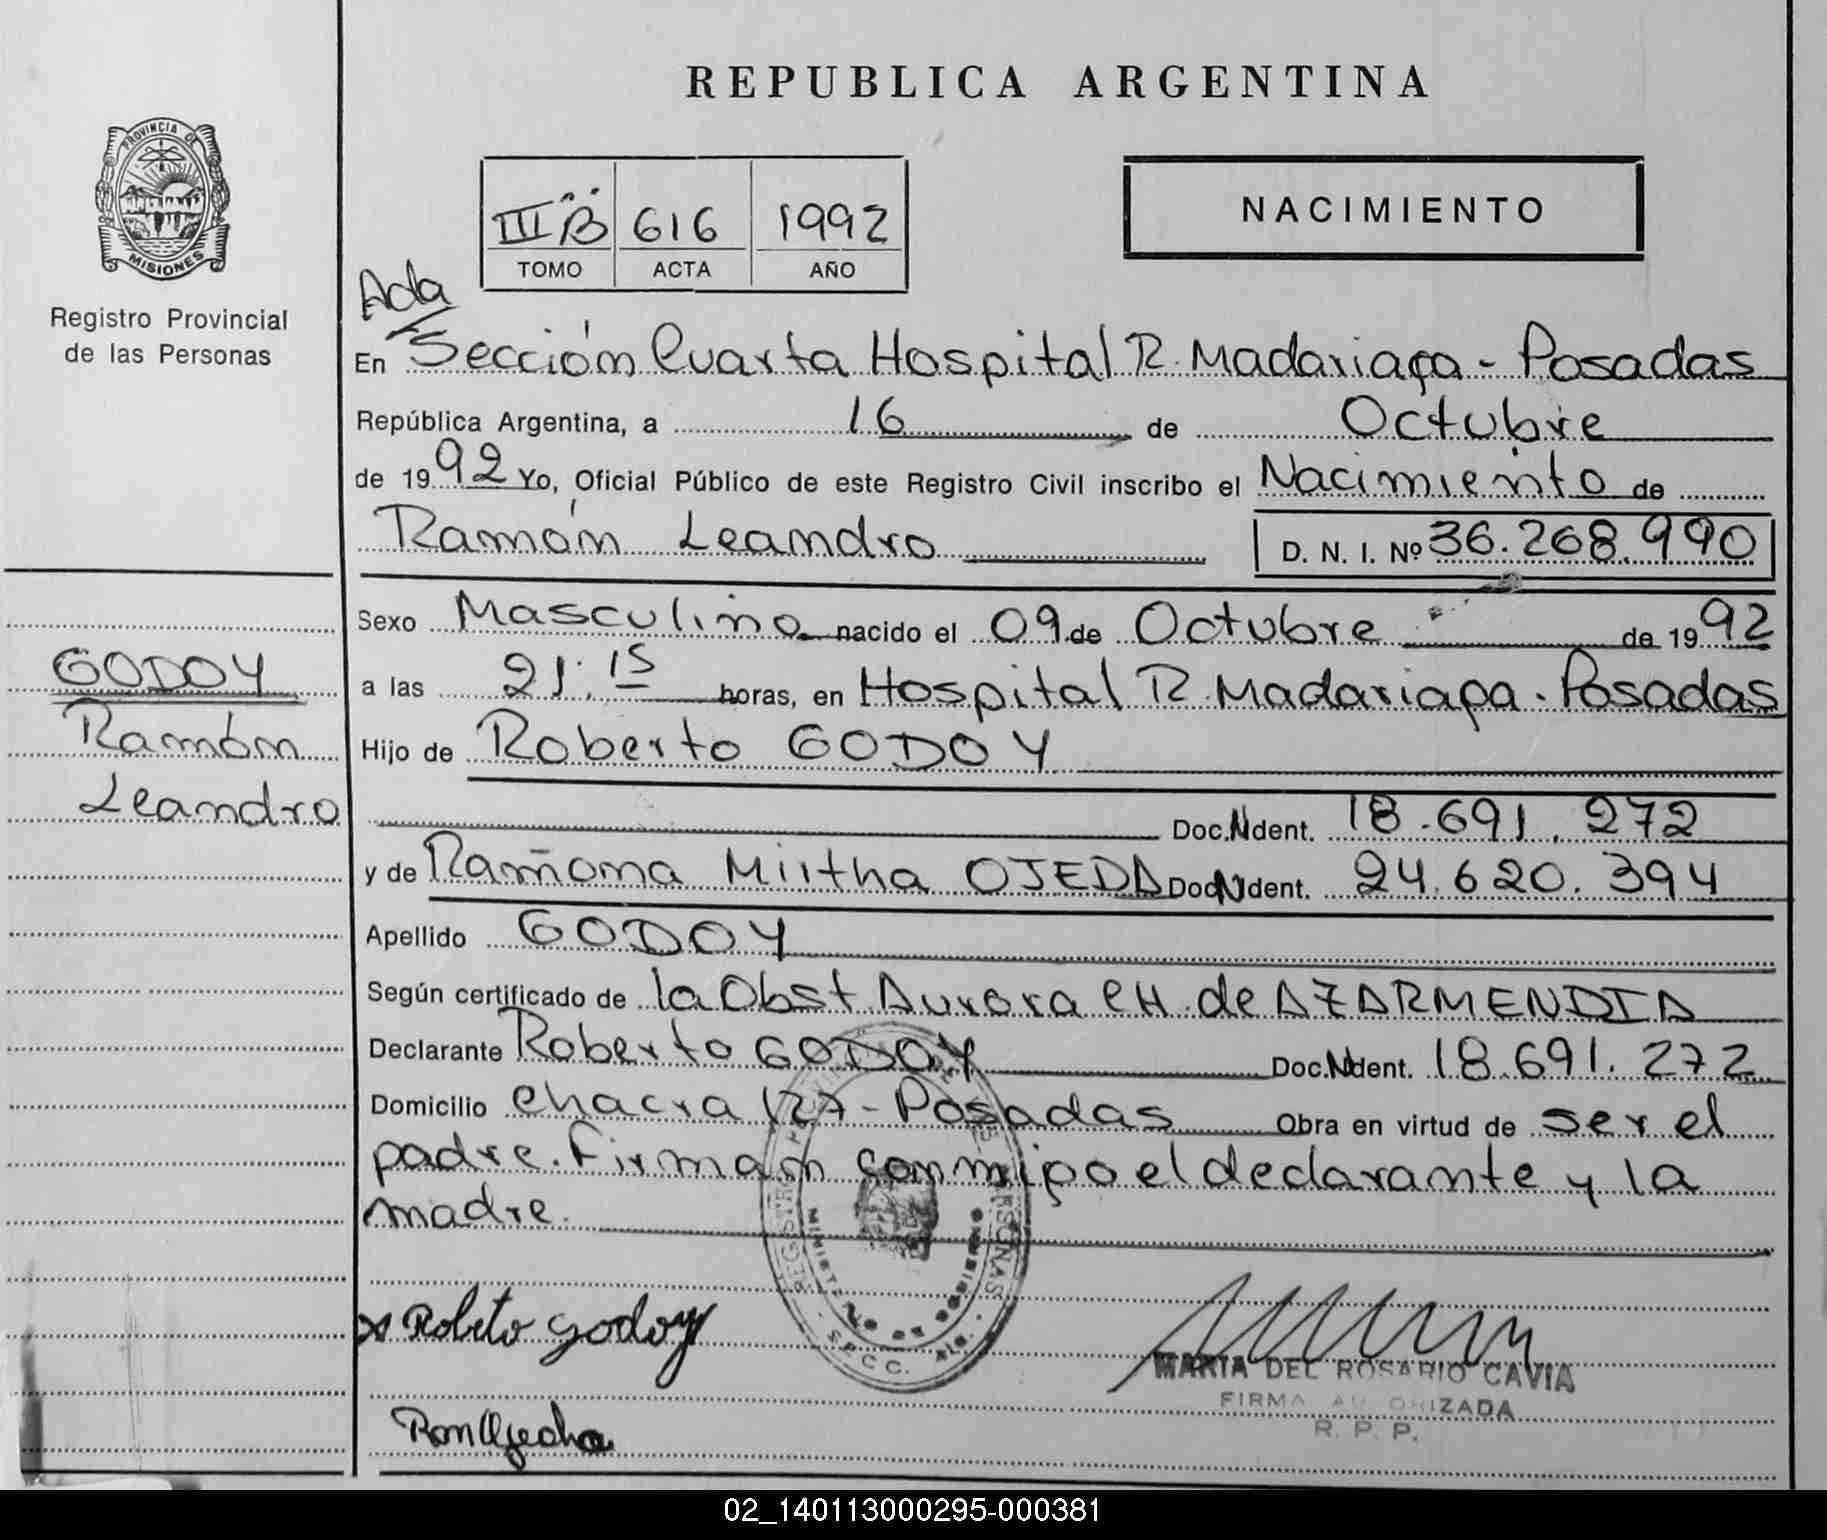 REPUBLICA ARGENTINA
PROVINCIA DE
MISIONES
Registro Provincial
de las Personas
III B 616 1992
TOMO ACTA AÑO
NACIMIENTO
Ada
En Sección Cuarta Hospital R. Madariaga - Posadas
República Argentina, a 16 de Octubre
de 1992 Yo, Oficial Público de este Registro Civil inscribo el Nacimiento de
Ramón Leandro D. N. I. Nº 36.268.990
Sexo Masculino nacido el 09 de Octubre de 1992
GODOY
Ramón
Leandro
a las 21:15 horas, en Hospital R. Madariaga - Posadas
Hijo de Roberto GODOY
Doc. Ident. 18.691.272
y de Ramona Mirtha OJEDA Doc. Ident. 24.620.394
Apellido GODOY
Según certificado de la Obst. Aurora CH. de AZARMENDIA
Declarante Roberto GODOY Doc. Ident. 18.691.272
Domicilio Chacra 127 - Posadas Obra en virtud de ser el
padre. Firman conmigo el declarante y la
madre.
Roberto Godoy
MARIA DEL ROSARIO CAVIA
FIRMA AUTORIZADA
R. P. P.
02_140113000295-000381